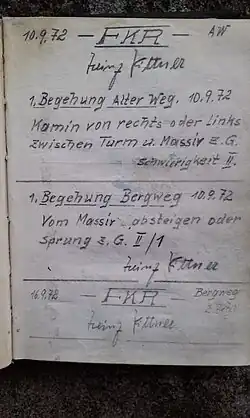 10.9.72 — FKR — AW
Heinz Kittner
1. Begehung Alter Weg. 10.9.72
Kamin von rechts oder Links
zwischen Turm u. Massiv z. G.
Schwierigkeit II.
1. Begehung Bergweg 10.9.72
Vom Massiv absteigen oder
Sprung z. G. II/1
Heinz Kittner
16.9.72 — FKR — Bergweg
Heinz Kittner